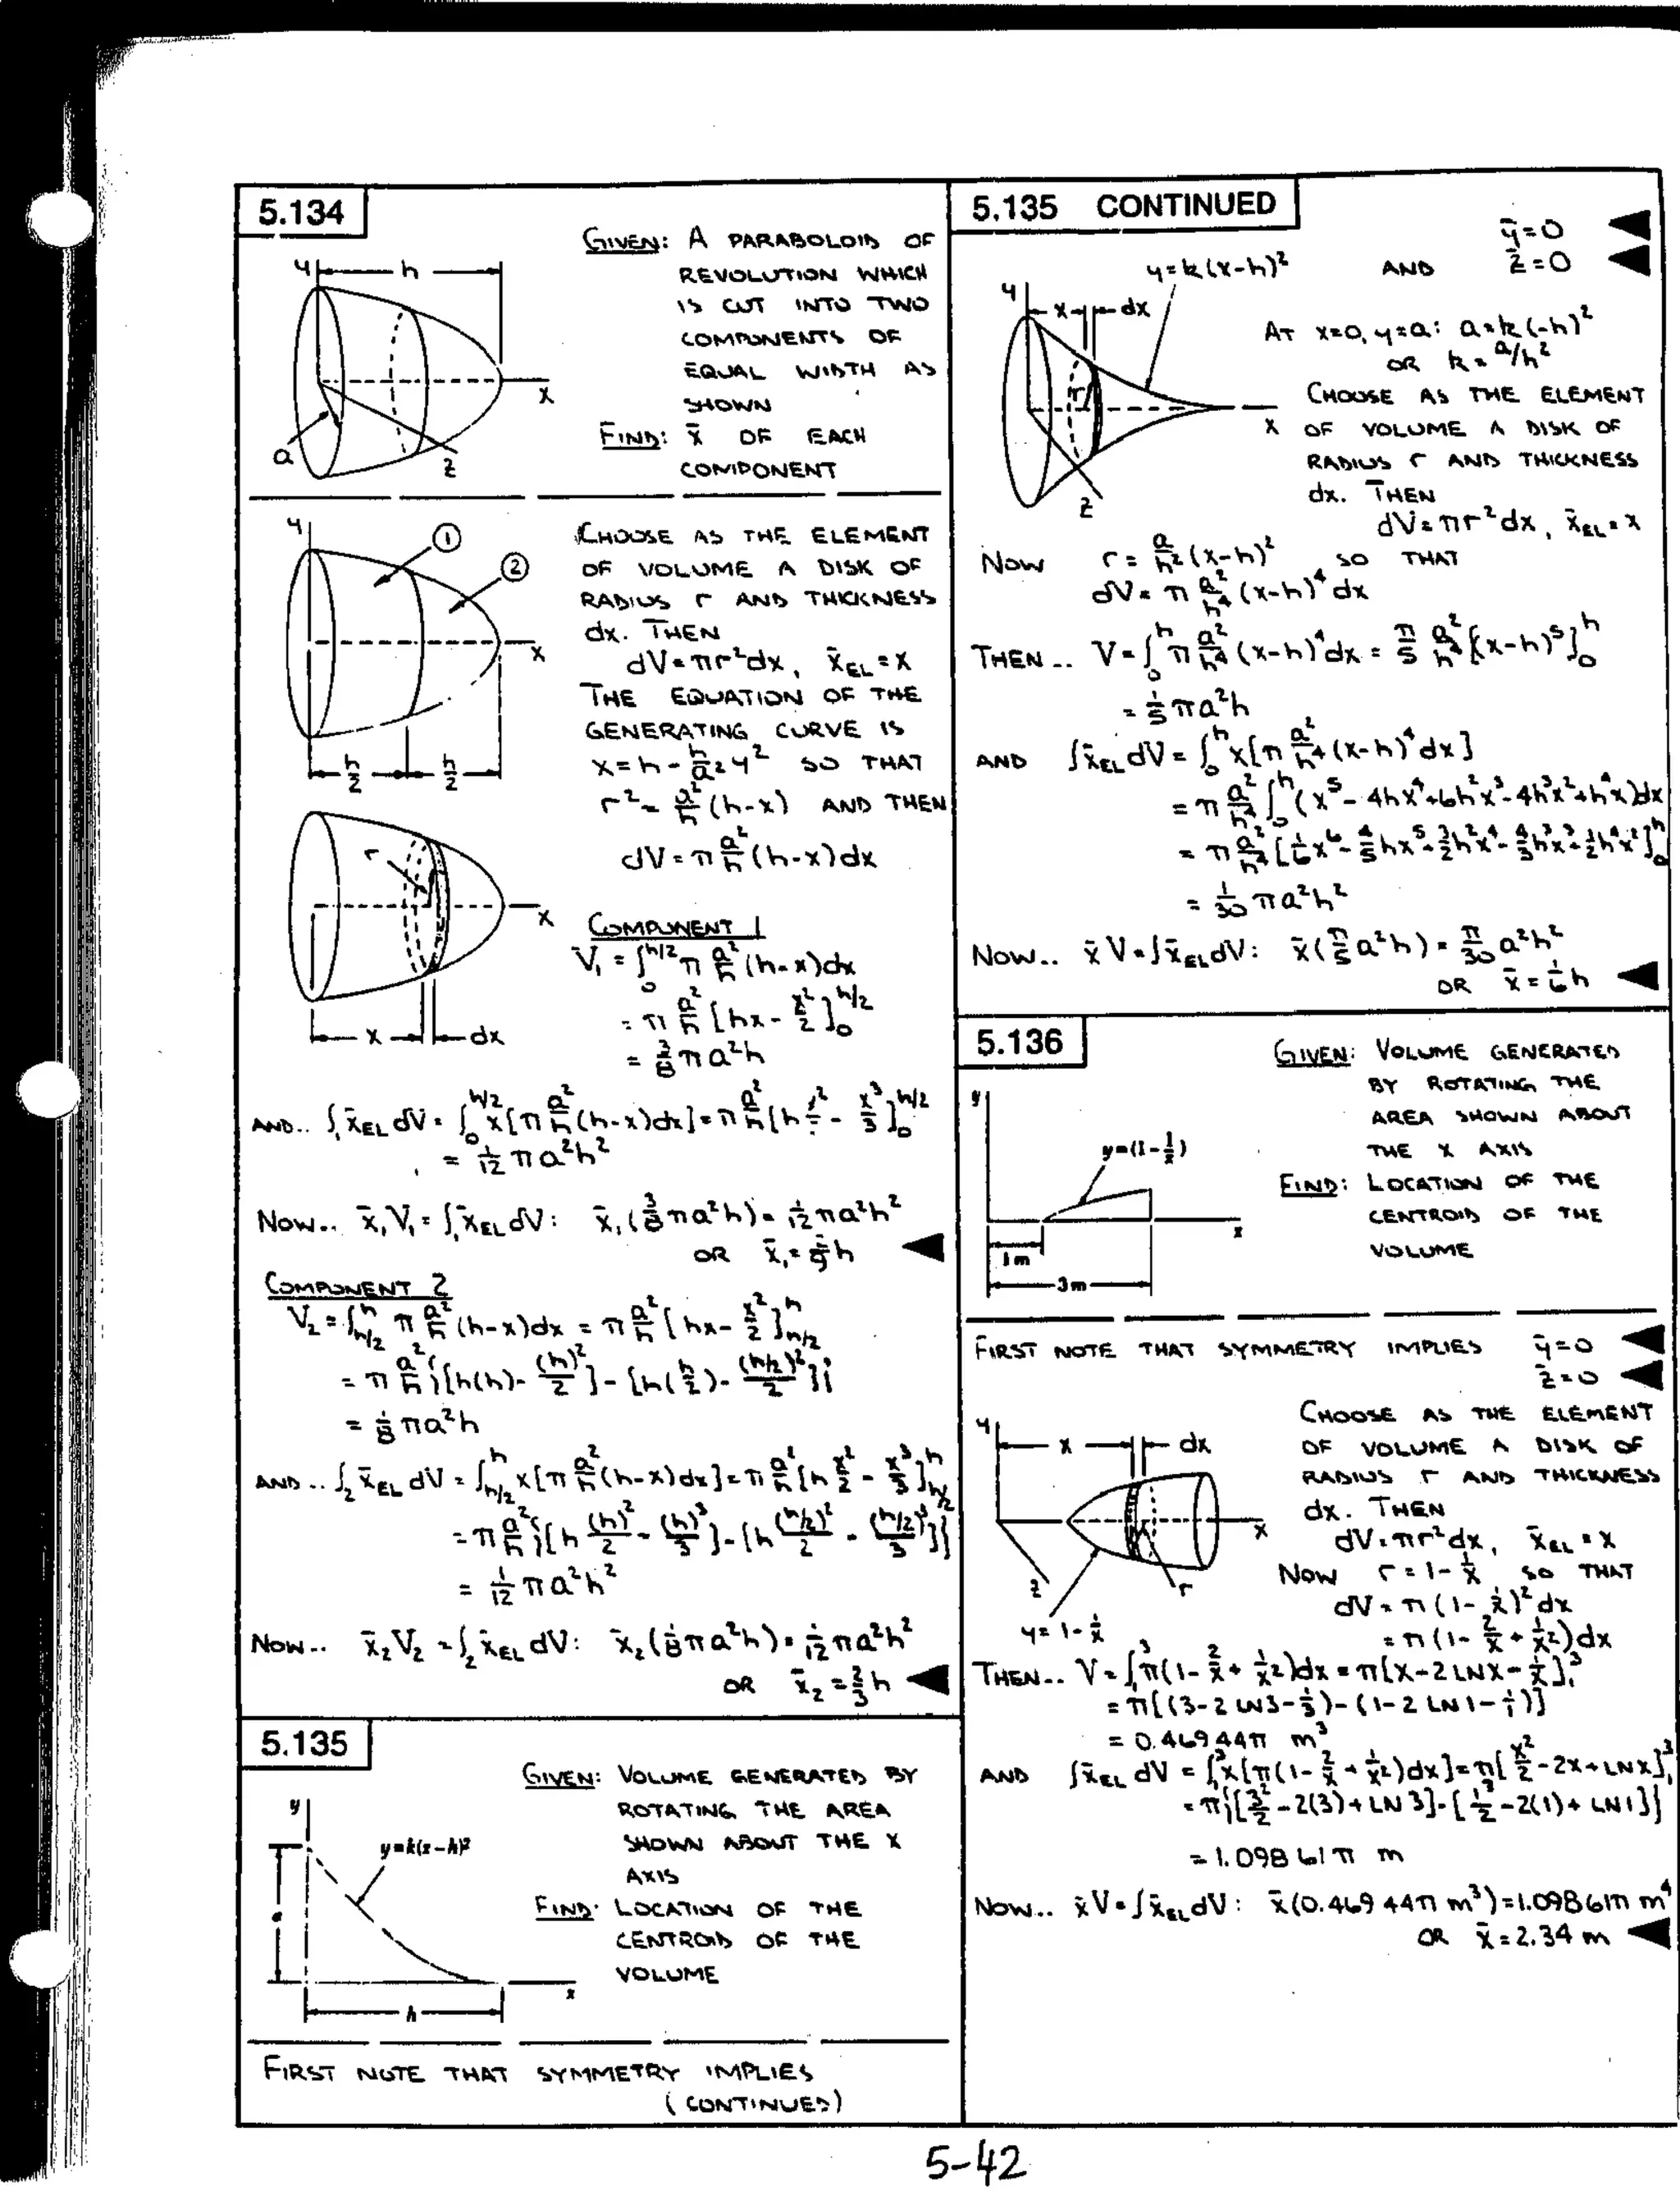 5.134
GIVEN: A PARABOLOID OF
REVOLUTION WHICH
IS CUT INTO TWO
COMPONENTS OF
EQUAL WIDTH AS
SHOWN
FIND: x̄ OF EACH
COMPONENT
y
h
x
a
z
CHOOSE AS THE ELEMENT
OF VOLUME A DISK OF
RADIUS r AND THICKNESS
dx. THEN
dV = πr²dx, x̄EL = x
THE EQUATION OF THE
GENERATING CURVE IS
x = h - h/a² y² SO THAT
r² = a²/h (h-x) AND THEN
dV = π a²/h (h-x)dx
y
①
②
x
h/2
h/2
r
x
x
dx
COMPONENT 1
V₁ = ∫₀^h/2 π a²/h (h-x)dx
= π a²/h [hx - x²/2]₀^h/2
= 3/8 πa²h
AND.. ∫₁ x̄EL dV = ∫₀^h/2 x[π a²/h (h-x)dx] = π a²/h [h x²/2 - x³/3]₀^h/2
= 1/12 πa²h²
NOW.. x̄₁V₁ = ∫₁ x̄EL dV: x̄₁(3/8 πa²h) = 1/12 πa²h²
OR x̄₁ = 2/9 h
COMPONENT 2
V₂ = ∫h/2^h π a²/h (h-x)dx = π a²/h [hx - x²/2]h/2^h
= π a²/h {[h(h) - (h)²/2] - [h(h/2) - (h/2)²/2]}
= 1/8 πa²h
AND.. ∫₂ x̄EL dV = ∫h/2^h x[π a²/h (h-x)dx] = π a²/h [h x²/2 - x³/3]h/2^h
= π a²/h {[h (h)²/2 - (h)³/3] - [h (h/2)²/2 - (h/2)³/3]}
= 1/12 πa²h²
NOW.. x̄₂V₂ = ∫₂ x̄EL dV: x̄₂(1/8 πa²h) = 1/12 πa²h²
OR x̄₂ = 2/3 h
5.135
GIVEN: VOLUME GENERATED BY
ROTATING THE AREA
SHOWN ABOUT THE X
AXIS
FIND: LOCATION OF THE
CENTROID OF THE
VOLUME
y
y=k(x-h)²
a
x
h
FIRST NOTE THAT SYMMETRY IMPLIES
(CONTINUED)
5.135 CONTINUED
ȳ=0
AND z̄=0
y=k(x-h)²
y
x
dx
r
x
z
AT x=0, y=a: a=k(-h)²
OR k = a/h²
CHOOSE AS THE ELEMENT
OF VOLUME A DISK OF
RADIUS r AND THICKNESS
dx. THEN
dV = πr²dx, x̄EL = x
NOW r = a/h² (x-h)² SO THAT
dV = π a²/h⁴ (x-h)⁴dx
THEN.. V = ∫₀^h π a²/h⁴ (x-h)⁴dx = π/5 a²/h⁴ [(x-h)⁵]₀^h
= 1/5 πa²h
AND ∫x̄EL dV = ∫₀^h x[π a²/h⁴ (x-h)⁴dx]
= π a²/h⁴ ∫₀^h (x⁵ - 4hx⁴ + 6h²x³ - 4h³x² + h⁴x)dx
= π a²/h⁴ [1/6 x⁶ - 4/5 hx⁵ + 3/2 h²x⁴ - 4/3 h³x³ + 1/2 h⁴x²]₀^h
= 1/30 πa²h²
NOW.. x̄V = ∫x̄EL dV: x̄(π/5 a²h) = π/30 a²h²
OR x̄ = 1/6 h
5.136
GIVEN: VOLUME GENERATED
BY ROTATING THE
AREA SHOWN ABOUT
THE X AXIS
FIND: LOCATION OF THE
CENTROID OF THE
VOLUME
y
y=(1-1/x)
x
1m
3m
FIRST NOTE THAT SYMMETRY IMPLIES ȳ=0
z̄=0
CHOOSE AS THE ELEMENT
OF VOLUME A DISK OF
RADIUS r AND THICKNESS
dx. THEN
dV = πr²dx, x̄EL = x
NOW r = 1 - 1/x SO THAT
dV = π(1 - 1/x)²dx
= π(1 - 2/x + 1/x²)dx
y
x
dx
x
z
r
y = 1 - 1/x
THEN.. V = ∫₁³ π(1 - 2/x + 1/x²)dx = π[x - 2 LN x - 1/x]₁³
= π[(3 - 2 LN 3 - 1/3) - (1 - 2 LN 1 - 1/1)]
= 0.46944π m³
AND ∫x̄EL dV = ∫₁³ x[π(1 - 2/x + 1/x²)dx] = π[x²/2 - 2x + LN x]₁³
= π{[3²/2 - 2(3) + LN 3] - [1²/2 - 2(1) + LN 1]}
= 1.09861π m
NOW.. x̄V = ∫x̄EL dV: x̄(0.46944π m³) = 1.09861π m⁴
OR x̄ = 2.34 m
5-42